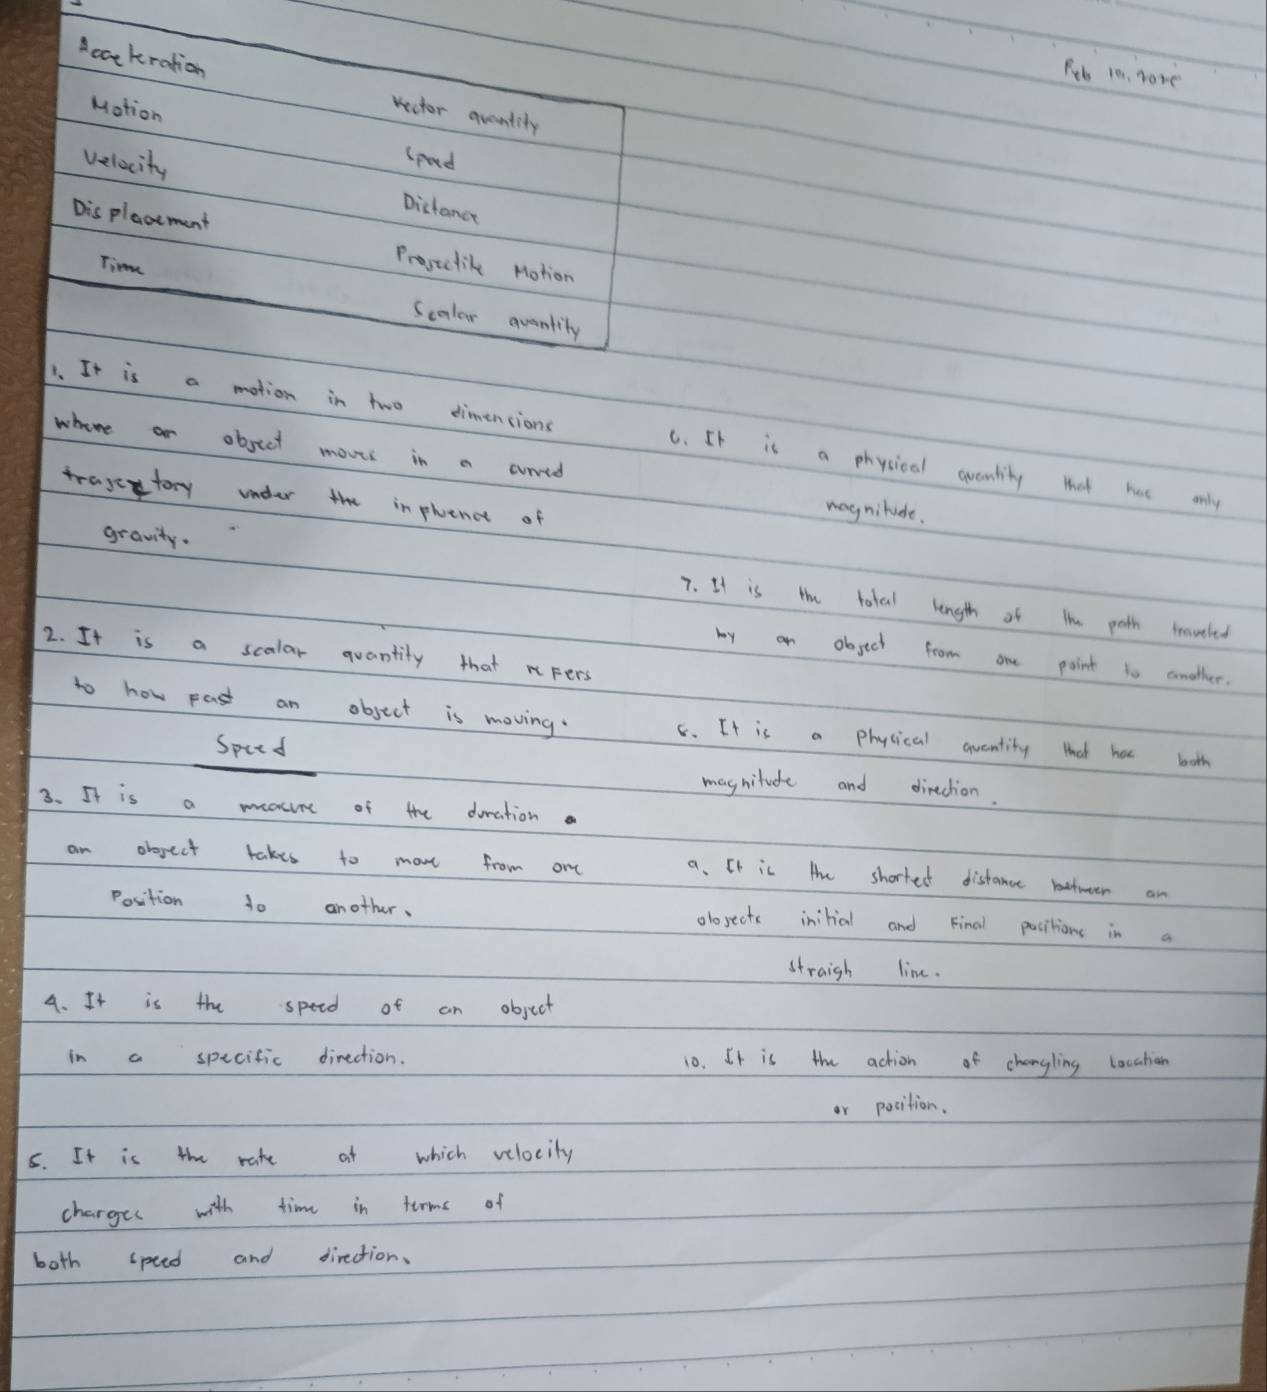 Acceleration
Motion
Velocity
Displacement
Time
Vector quantity
Speed
Distance
Projectile Motion
Scalar quantity
Feb
1. It is a motion in two dimensions
where an object moves in a curved
trajectory under the influence of
gravity.
2. It is a scalar quantity that refers
to how fast an object is moving.
Speed
3. It is a measure of the duration
an object takes to move from one
Position to another.
4. It is the speed of an object
in a specific direction.
5. It is the rate at which velocity
changes with time in terms of
both speed and direction.
6. It is a physical quantity that has only
magnitude.
7. It is the total length of the path traveled
by an object from one point to another.
8. It is a physical quantity that has both
magnitude and direction.
9. It is the shorted distance between an
objects initial and Final positions in a
straigh line.
10. It is the action of changling location
or position.